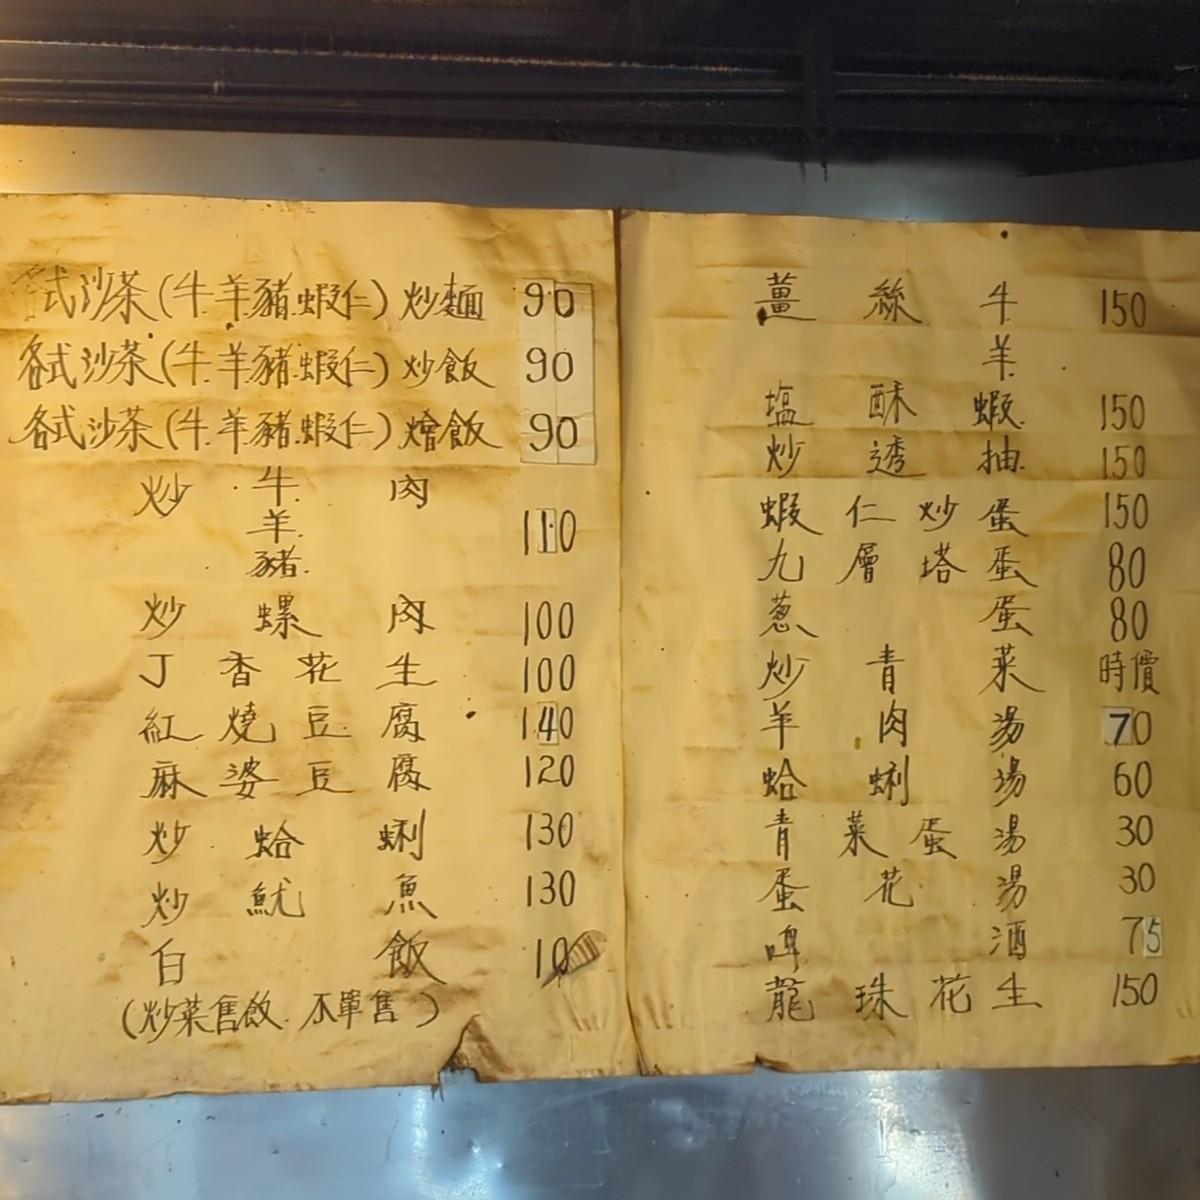 各式沙茶(牛.羊.豬.蝦仁)炒麵 90
各式沙茶(牛.羊.豬.蝦仁)炒飯 90
各式沙茶(牛.羊.豬.蝦仁)燴飯 90
炒 牛. 肉
羊. 110
豬.
炒 螺 肉 100
丁 香 花 生 100
紅 燒 豆 腐 140
麻 婆 豆 腐 120
炒 蛤 蜊 130
炒 魷 魚 130
白 飯 10
(炒菜售飯.不單售)
薑 絲 牛 150
羊
塩 酥 蝦 150
炒 透 抽 150
蝦 仁 炒 蛋 150
九 層 塔 蛋 80
蔥 蛋 80
炒 青 菜 時價
羊 肉 湯 70
蛤 蜊 湯 60
青 菜 蛋 湯 30
蛋 花 湯 30
啤 酒 75
龍 珠 花 生 150